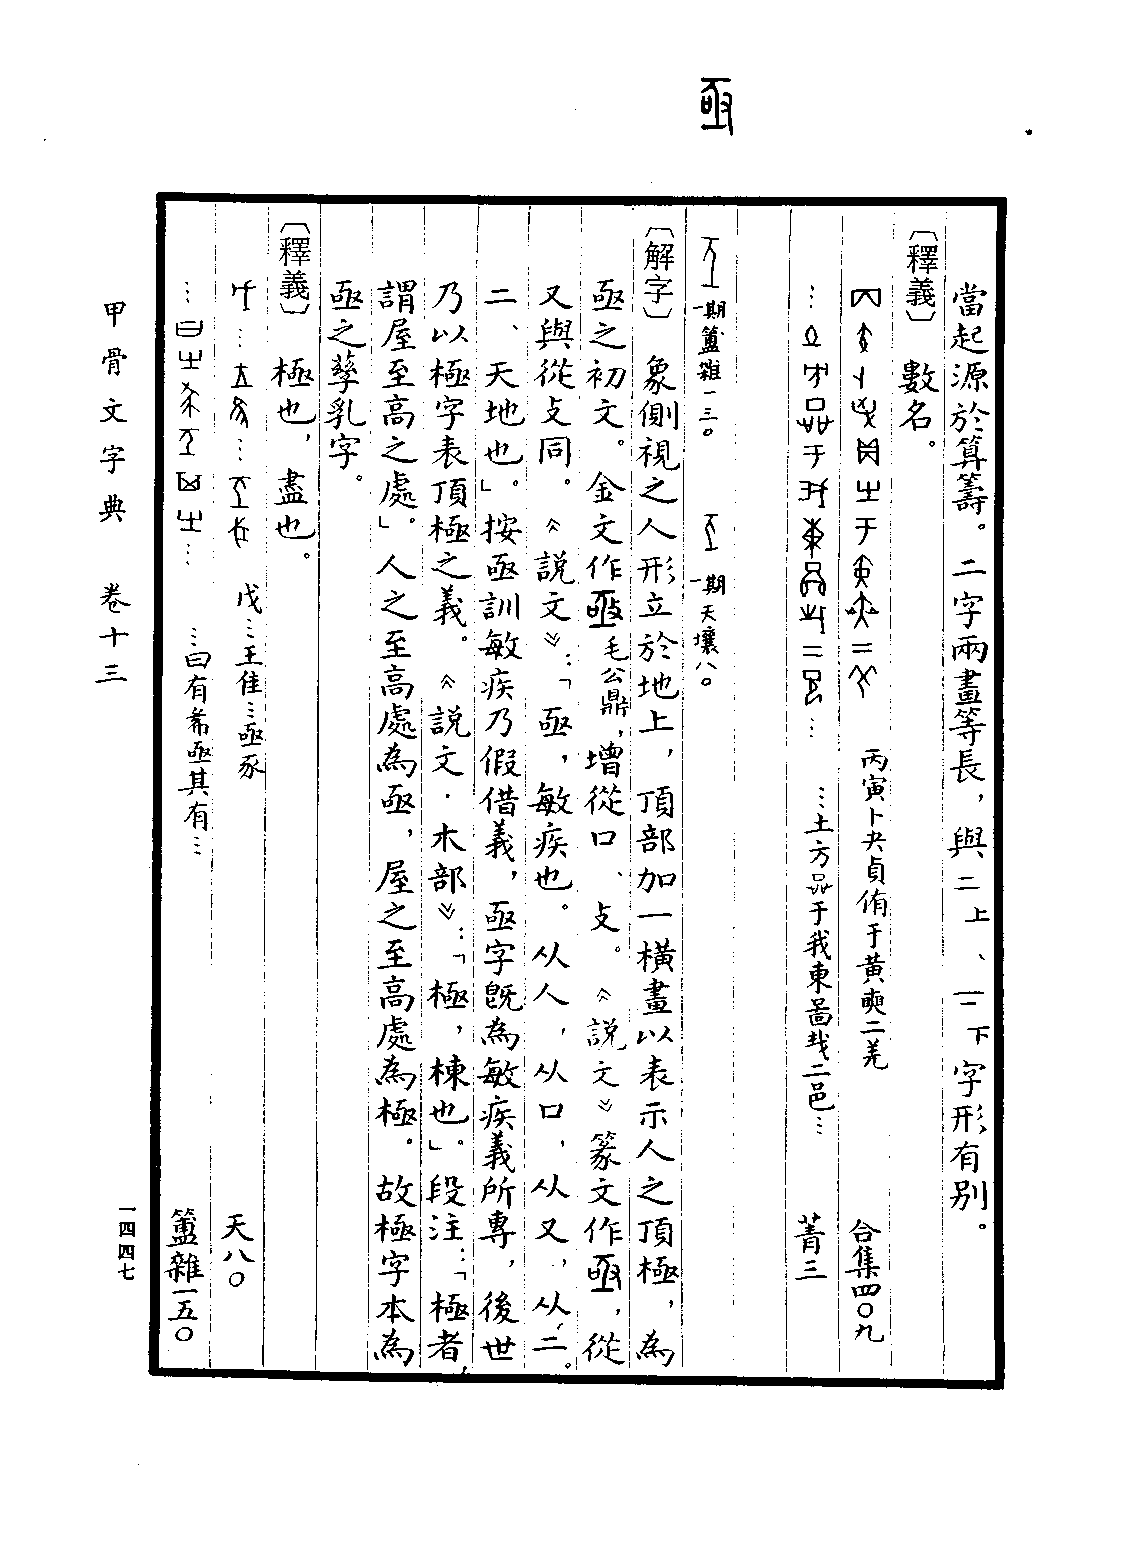 亟
當起源於算籌。二字兩畫等長，與二上、一二下字形有別。
〔釋義〕
數名。
丙寅卜央貞侑于黃奭二羌 合集四〇九
…土方品于我東啚𢦏二邑… 菁三
一期簠雜一三〇 一期天壤八〇
〔解字〕 象側視之人形立於地上，頂部加一橫畫以表示人之頂極，為
亟之初文。金文作毛公鼎，增從口、攴。《說文》篆文作，從
又與從攴同。《說文》：「亟，敏疾也。从人，从口，从又，从二。
二、天地也。」按亟訓敏疾乃假借義，亟字既為敏疾義所專，後世
乃以極字表頂極之義。《說文·木部》：「極，棟也」。段注：「極者，
謂屋至高之處」。人之至高處為亟，屋之至高處為極。故極字本為
亟之孳乳字。
〔釋義〕
極也，盡也。
戊…王隹…亟豕 天八〇
…曰有希亟其有… 簠雜一五〇
甲骨文字典 卷十三
一四四七